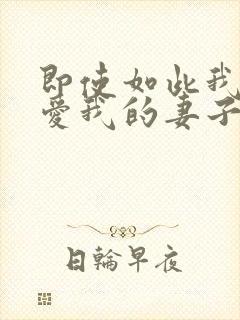 即使如此我
爱我的妻子
日輪早夜